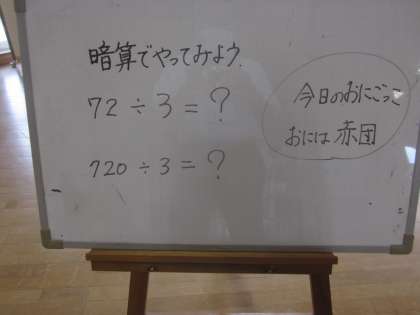 暗算でやってみよう.
72÷3=?
720÷3=?
今日のおにごっこ
おには赤団